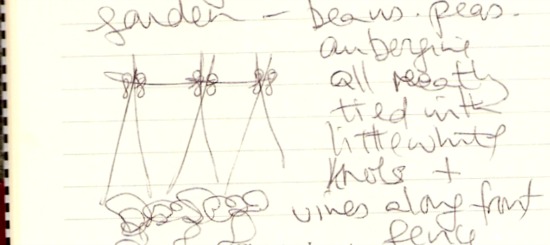 garden - beans. peas.
aubergine
all neatly
tied with
little white
knots +
vines along front
fence